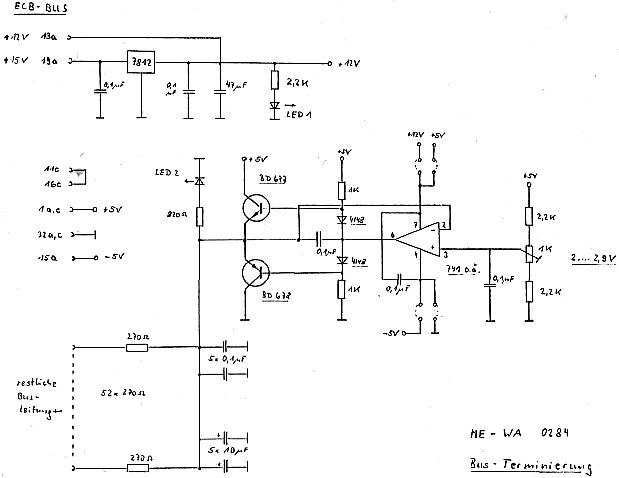 ECB-BUS
+12V 13a
+15V 19a
7812
+12V
0,1µF
0,1 µF
47µF
2,2K
LED 1
11c
16c
1a,c +5V
32a,c
15a -5V
LED 2
820Ω
+5V
BD 677
BD 678
+5V
1K
4148
0,1µF
4148
1K
+12V +5V
7
2
-
6
+
3
4
741 o.ä.
0,1µF
-5V
0,1µF
+5V
2,2K
1K
2,2K
2....2,9V
270Ω
5x 0,1µF
restliche
Bus-
leitungen
52x 270Ω
5x 10µF
270Ω
HE-WA 0284
Bus-Terminierung